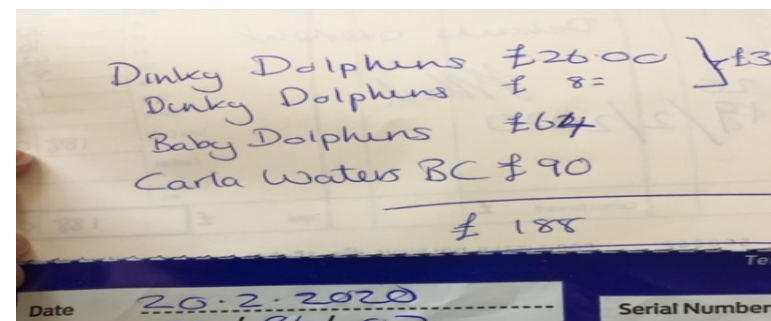 Dinky Dolphins £26.00 } £3
Dinky Dolphins £ 8=
Baby Dolphins £64
Carla Waters BC £90
£ 188
Te
Date 20.2.2020
Serial Number